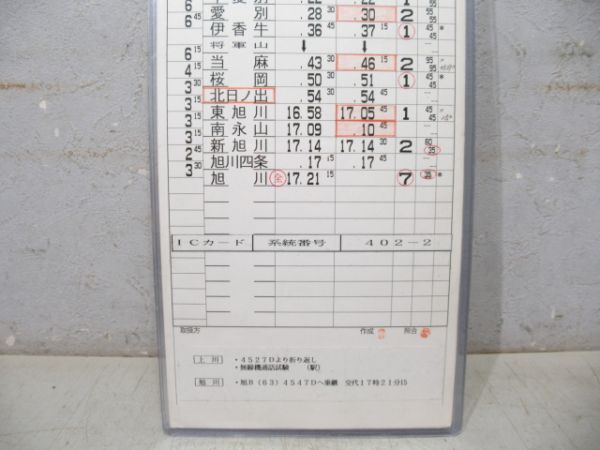 6 45 愛別 .28 30 .30 2 55 55
6 伊香牛 .36 45 .37 15 1 45 45 *
将軍山 ↓ ↓
6 15 当麻 .43 30 .46 15 2 95 95
4 桜岡 .50 30 .51 1 45 45 *
3 北日ノ出 .54 .54 45
3 15 東旭川 16.58 17.05 45 1 45 45
3 15 南永山 17.09 .10 45
3 45 新旭川 17.14 17.14 30 2 60 35
2 30 旭川四条 .17 15 .17 45
3 旭川 全 17.21 15 7 35 *
ICカード 系統番号 402-2
取扱方 作成 照合
上川 ・4527Dより折り返し
・無線機通話試験 (駅)
旭川 ・旭8(63)4547Dへ乗継 交代17時21分15